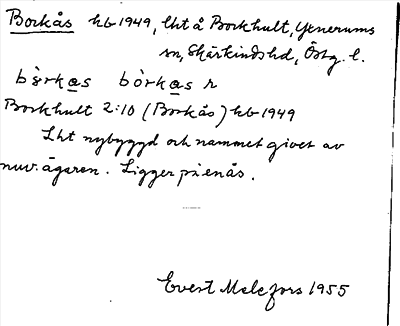 Borkås kb 1949, lht å Borkhult, Yxnerums
sn, Skärkinds hd, Östg. l.
bòrkas bòrkas r
Borkhult 2:10 (Borkås) kb 1949
Lht nybyggd och nammet givet av
nuv. ägaren. Ligger på en ås.
Evert Melefors 1955